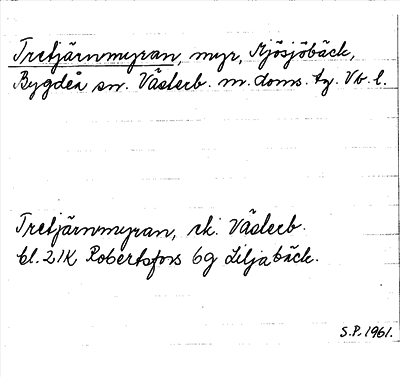 Tretjärnmyran, myr, Mjösjöbäck,
Bygdeå sn. Västerb. m. doms. tg. Vb. l.
Tretjärnmyran, rk. Västerb.
bl. 21K Robertsfors 6g Liljabäck.
S.P. 1961.